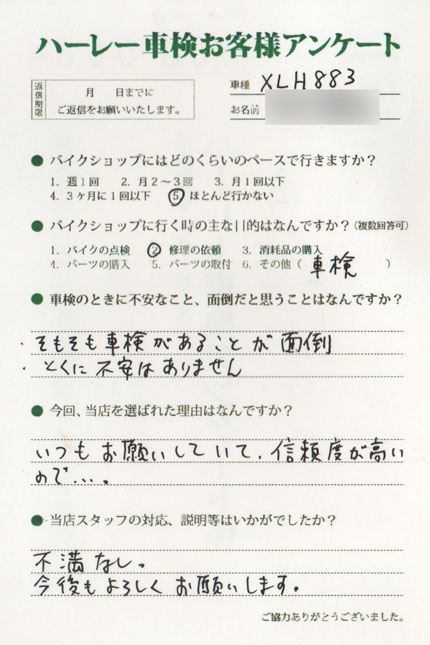 ハーレー車検お客様アンケート
返信期限
月 日までに
ご返信をお願いいたします。
車種 XLH883
お名前
● バイクショップにはどのくらいのペースで行きますか？
1. 週1回 2. 月2～3回 3. 月1回以下
4. 3ヶ月に1回以下 ⑤ ほとんど行かない
● バイクショップに行く時の主な目的はなんですか？(複数回答可)
1. バイクの点検 ② 修理の依頼 3. 消耗品の購入
4. パーツの購入 5. パーツの取付 6. その他（ 車検 ）
● 車検のときに不安なこと、面倒だと思うことはなんですか？
・そもそも車検があることが面倒
・とくに不安はありません
● 今回、当店を選ばれた理由はなんですか？
いつもお願いしていて、信頼度が高い
ので…。
● 当店スタッフの対応、説明等はいかがでしたか？
不満なし。
今後もよろしくお願いします。
ご協力ありがとうございました。